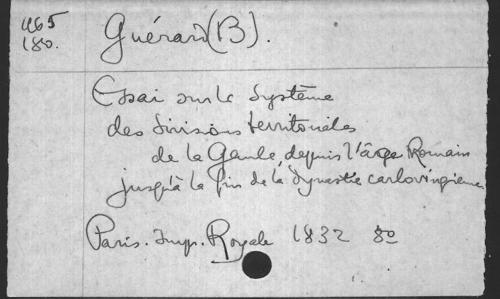 465
180.
Guérard (B).
Essai sur le système
des divisions territoriales
de la Gaule, depuis l'âge Romain
jusqu'à la fin de la dynastie carlovingienne
Paris. Imp. Royale 1832 8o